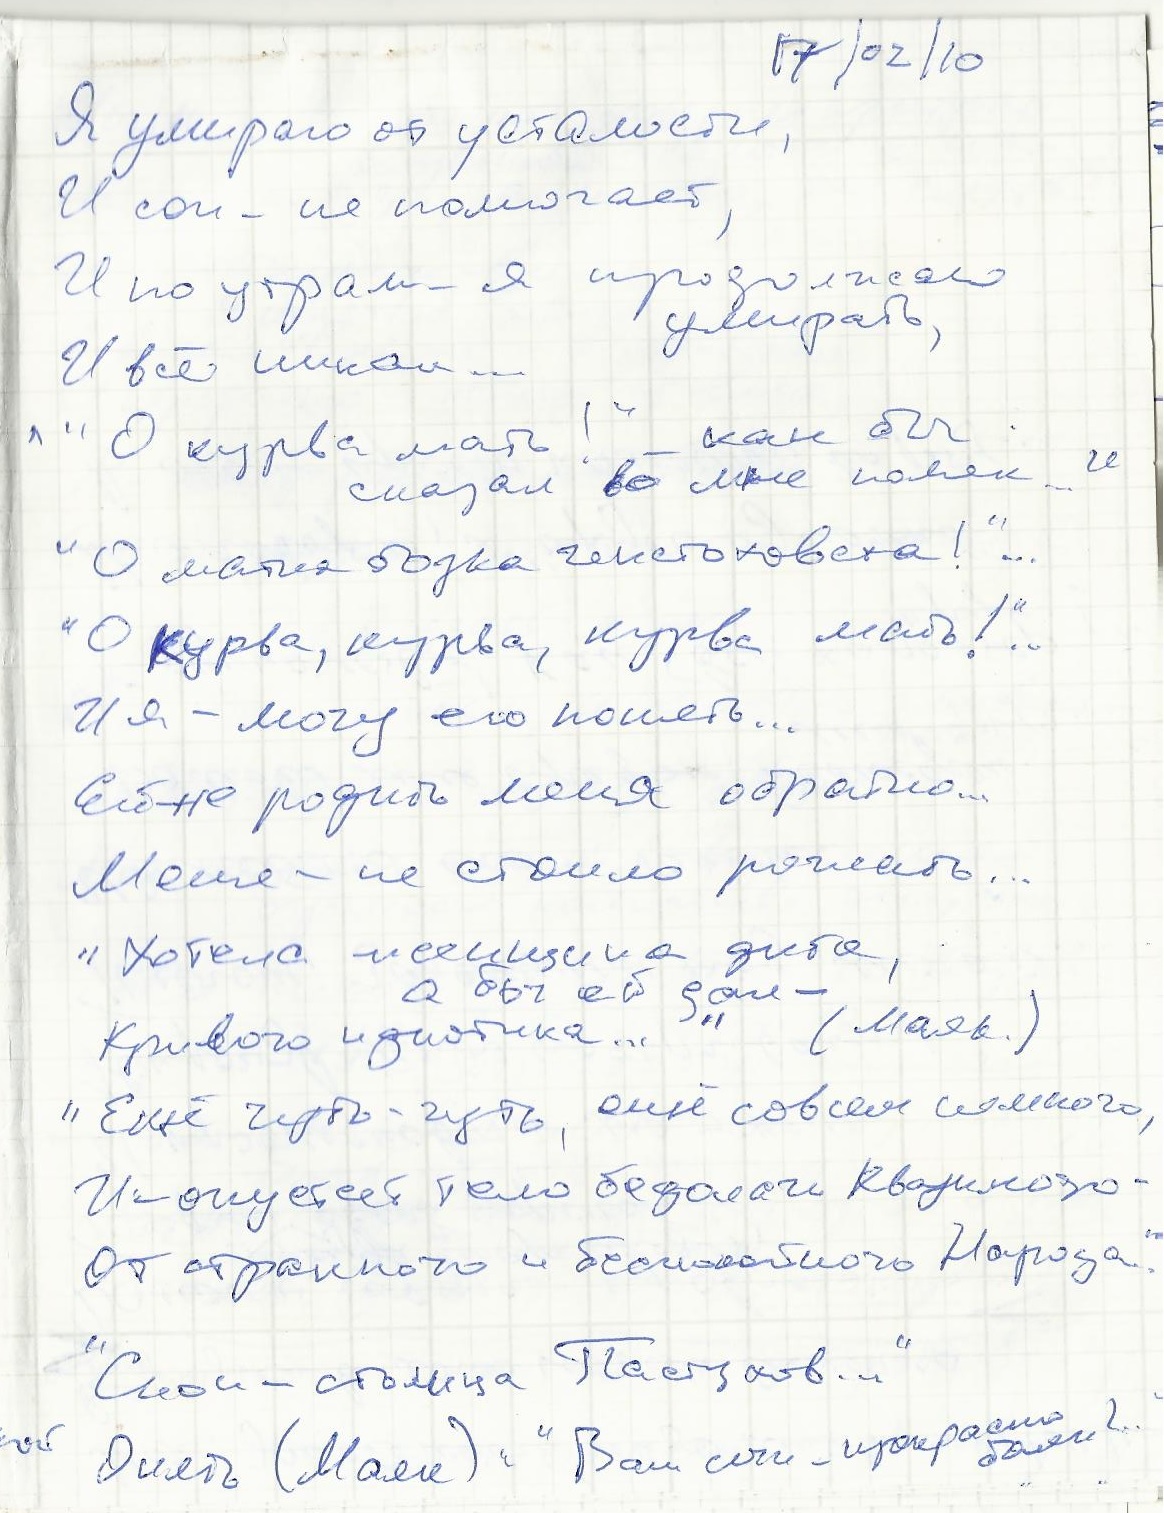 17/02/10
Я умираю от усталости,
И сон - не помогает,
И по утрам - я продолжаю
умирать,
И всё никак...
" О курва мать!" - как бы
сказал во мне поляк... и
"О матка бозка ченстоховска!"...
"О курва, курва, курва мать!"...
И я - могу его понять...
родить меня обратно...
Меня - не стоило рожать...
"Хотела женщина дитя,
а бог ей дал -
Кривого идиотика..." (Маяк.)
"Ещё чуть-чуть, ещё совсем немного,
И - опустеет тело бедолаги Квазимодо -
От странного и бесполого Народа..."
"Скон - столица Пастухов..."
Опять (Маяк) : "Ваш сын - прекрасно
болен!..."